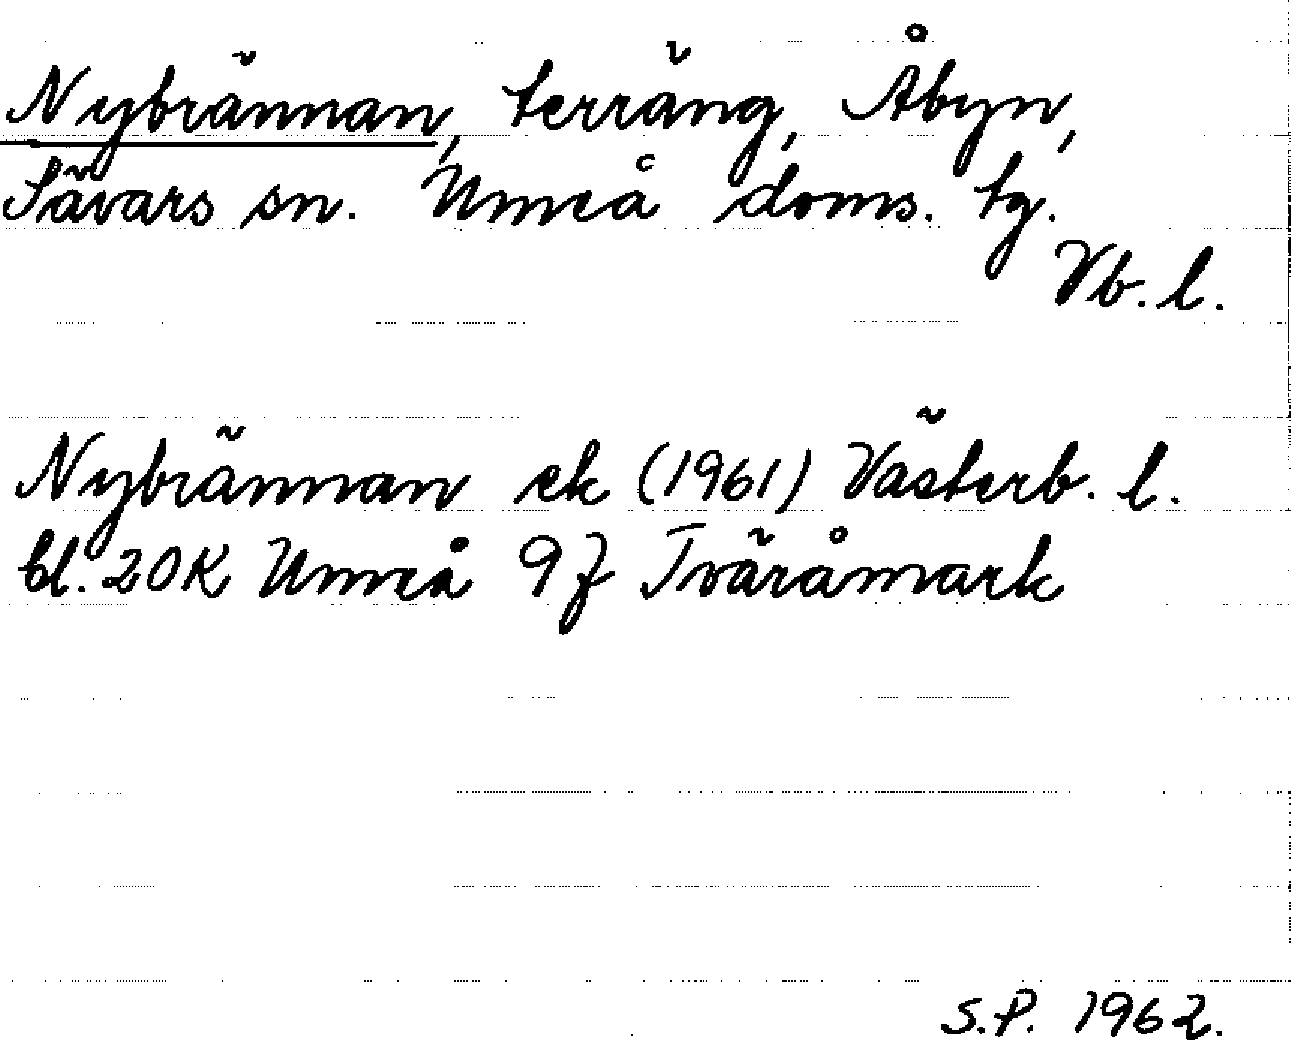 Nybrännan, terräng, Åbyn,
Sävars sn. Umeå doms. tg.
Vb. l.
Nybrännan ek (1961) Västerb. l.
bl. 20K Umeå 9f Tväråmark
S.P. 1962.